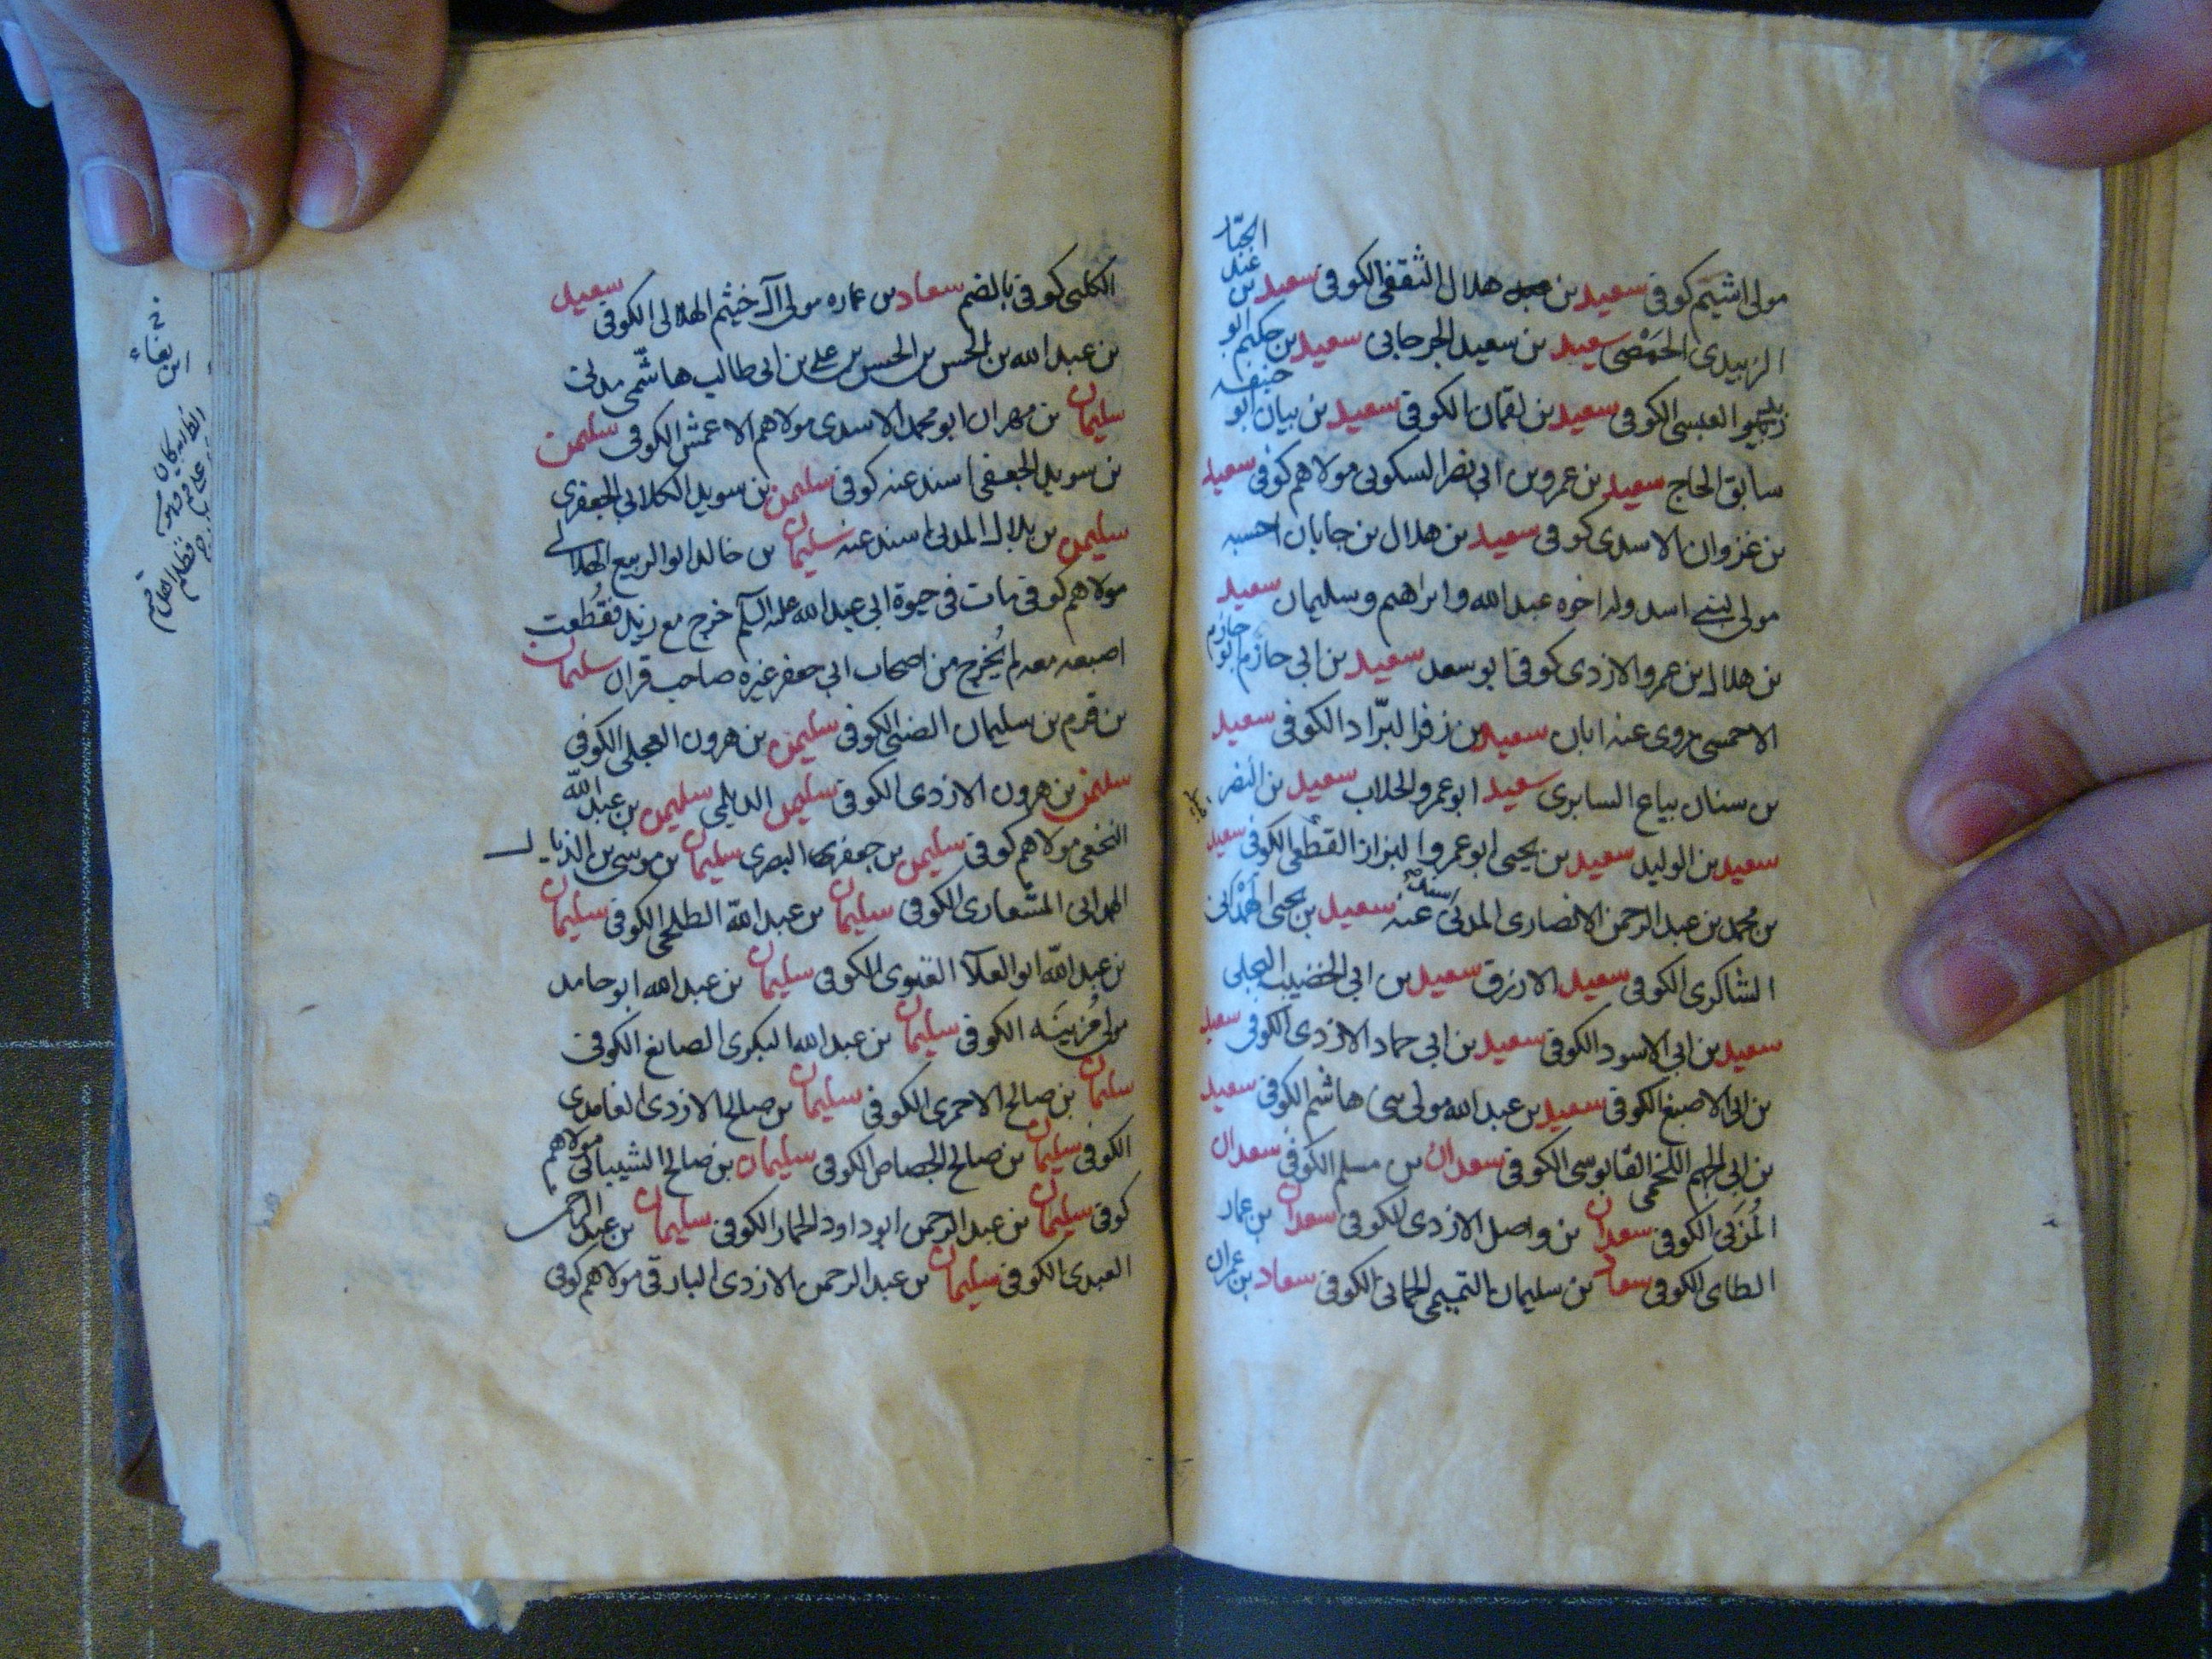 مولى اشيم كوفى سعيد بن هلال الثقفى الكوفى سعيد بن عبد الجبار
الزبيدى الحمصى سعيد بن سعيد الجرجانى سعيد بن حكيم ابو
زيد العبسى الكوفى سعيد بن لقمان الكوفى سعيد بن بيان ابو حنيفه
سابق الحاج سعيد بن عمرو بن ابى نصر السكونى مولاهم كوفى سعيد
بن غزوان الاسدى كوفى سعيد بن هلال بن جابان احسبه
مولى لبنى اسد وله اخوه عبد الله وابراهيم وسليمان سعيد
بن هلال بن عمرو الازدى كوفى ابو سعد سعيد بن ابى حازم ابو حازم
الاحمسى روى عنه ابان سعيد بن زفر البرّاد الكوفى سعيد
بن سنان بياع السابرى سعيد ابو عمرو الجلاب سعيد بن النضر
سعيد بن الوليد سعيد بن يحيى ابو عمرو البزاز القطعى الكوفى سعيد
بن محمد بن عبد الرحمن الانصارى المدنى اسند عنه سعيد بن يحيى الهمدانى
الشاكرى الكوفى سعيد الازرق سعيد بن ابى الخضيب البجلى
سعيد بن ابى الاسود الكوفى سعيد بن ابى حماد الازدى الكوفى سعيد
بن ابى الاصبغ الكوفى سعيد بن عبد الله مولى بنى هاشم الكوفى سعيد
بن ابى الجهم اللخمى القابوسى الكوفى سعدان بن مسلم الكوفى سعدان
المُزَنى الكوفى سعدان بن واصل الازدى الكوفى سعدان بن عمار
الطاى الكوفى سعاد بن سليمان التميمى الحمانى الكوفى سعاد بن عمران
الكلبى كوفى بالضم سعاد بن عماره مولى ال خيثم الهلالى الكوفى سعيد
بن عبد الله بن الحسن بن الحسن بن على بن ابى طالب هاشمى مدنى
سليمان بن مهران ابو محمد الاسدى مولاهم الاعمش الكوفى سليمن
بن سويد الجعفى اسند عنه كوفى سليمن بن سويد الكلابى الجعفرى
سليمن بن بلال المدنى اسند عنه سليمان بن خالد ابو الربيع الهلالى
مولاهم كوفى مات فى حيوة ابى عبد الله عليه السلم خرج مع زيد فقُطعت
اصبعه معه لم يُخرج من اصحاب ابى جعفر غيره صاحب قران سليمان
بن قرم بن سليمان الضبى الكوفى سليمن بن هرون العجلى الكوفى
سليمن بن هرون الازدى الكوفى سليمن الديلمى سليمن بن عبد الله
النخعى مولاهم كوفى سليمن بن جعفر البصرى سليمان بن موسى بن الذيال
الهمدانى المشعارى الكوفى سليمان بن عبد الله الطلحى الكوفى سليمان
بن عبد الله ابو العلآ الغنوى الكوفى سليمان بن عبد الله ابو حامد
مولى مُزَينَه الكوفى سليمان بن عبد الله البكرى الصائغ الكوفى
سليمان بن صالح الاحمرى الكوفى سليمان بن صالح الازدى الغامدى
الكوفى سليمان بن صالح الجصاص الكوفى سليمان بن صالح الشيبانى مولاهم
كوفى سليمان بن عبد الرحمن ابو داود الحمار الكوفى سليمان بن عبد الرحمن
العبدى الكوفى سليمان بن عبد الرحمن الازدى البارقى مولاهم كوفى